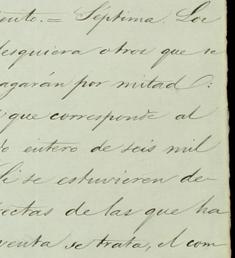 iento.= Séptima. Los
lesquiera otros que se
agarán por mitad:
que corresponde al
o entero de seis mil
Si se estuvieren de-
rectas de las que ha
venta se trata, el com